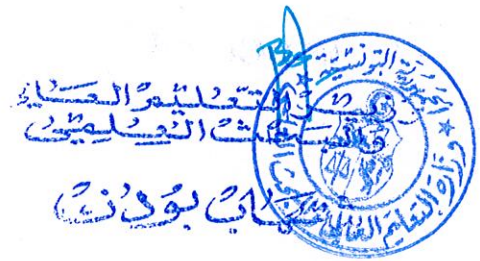 وزير التعليم العالي
والبحث العلمي
شهاب بودن
الجمهورية التونسية
وزارة التعليم العالي